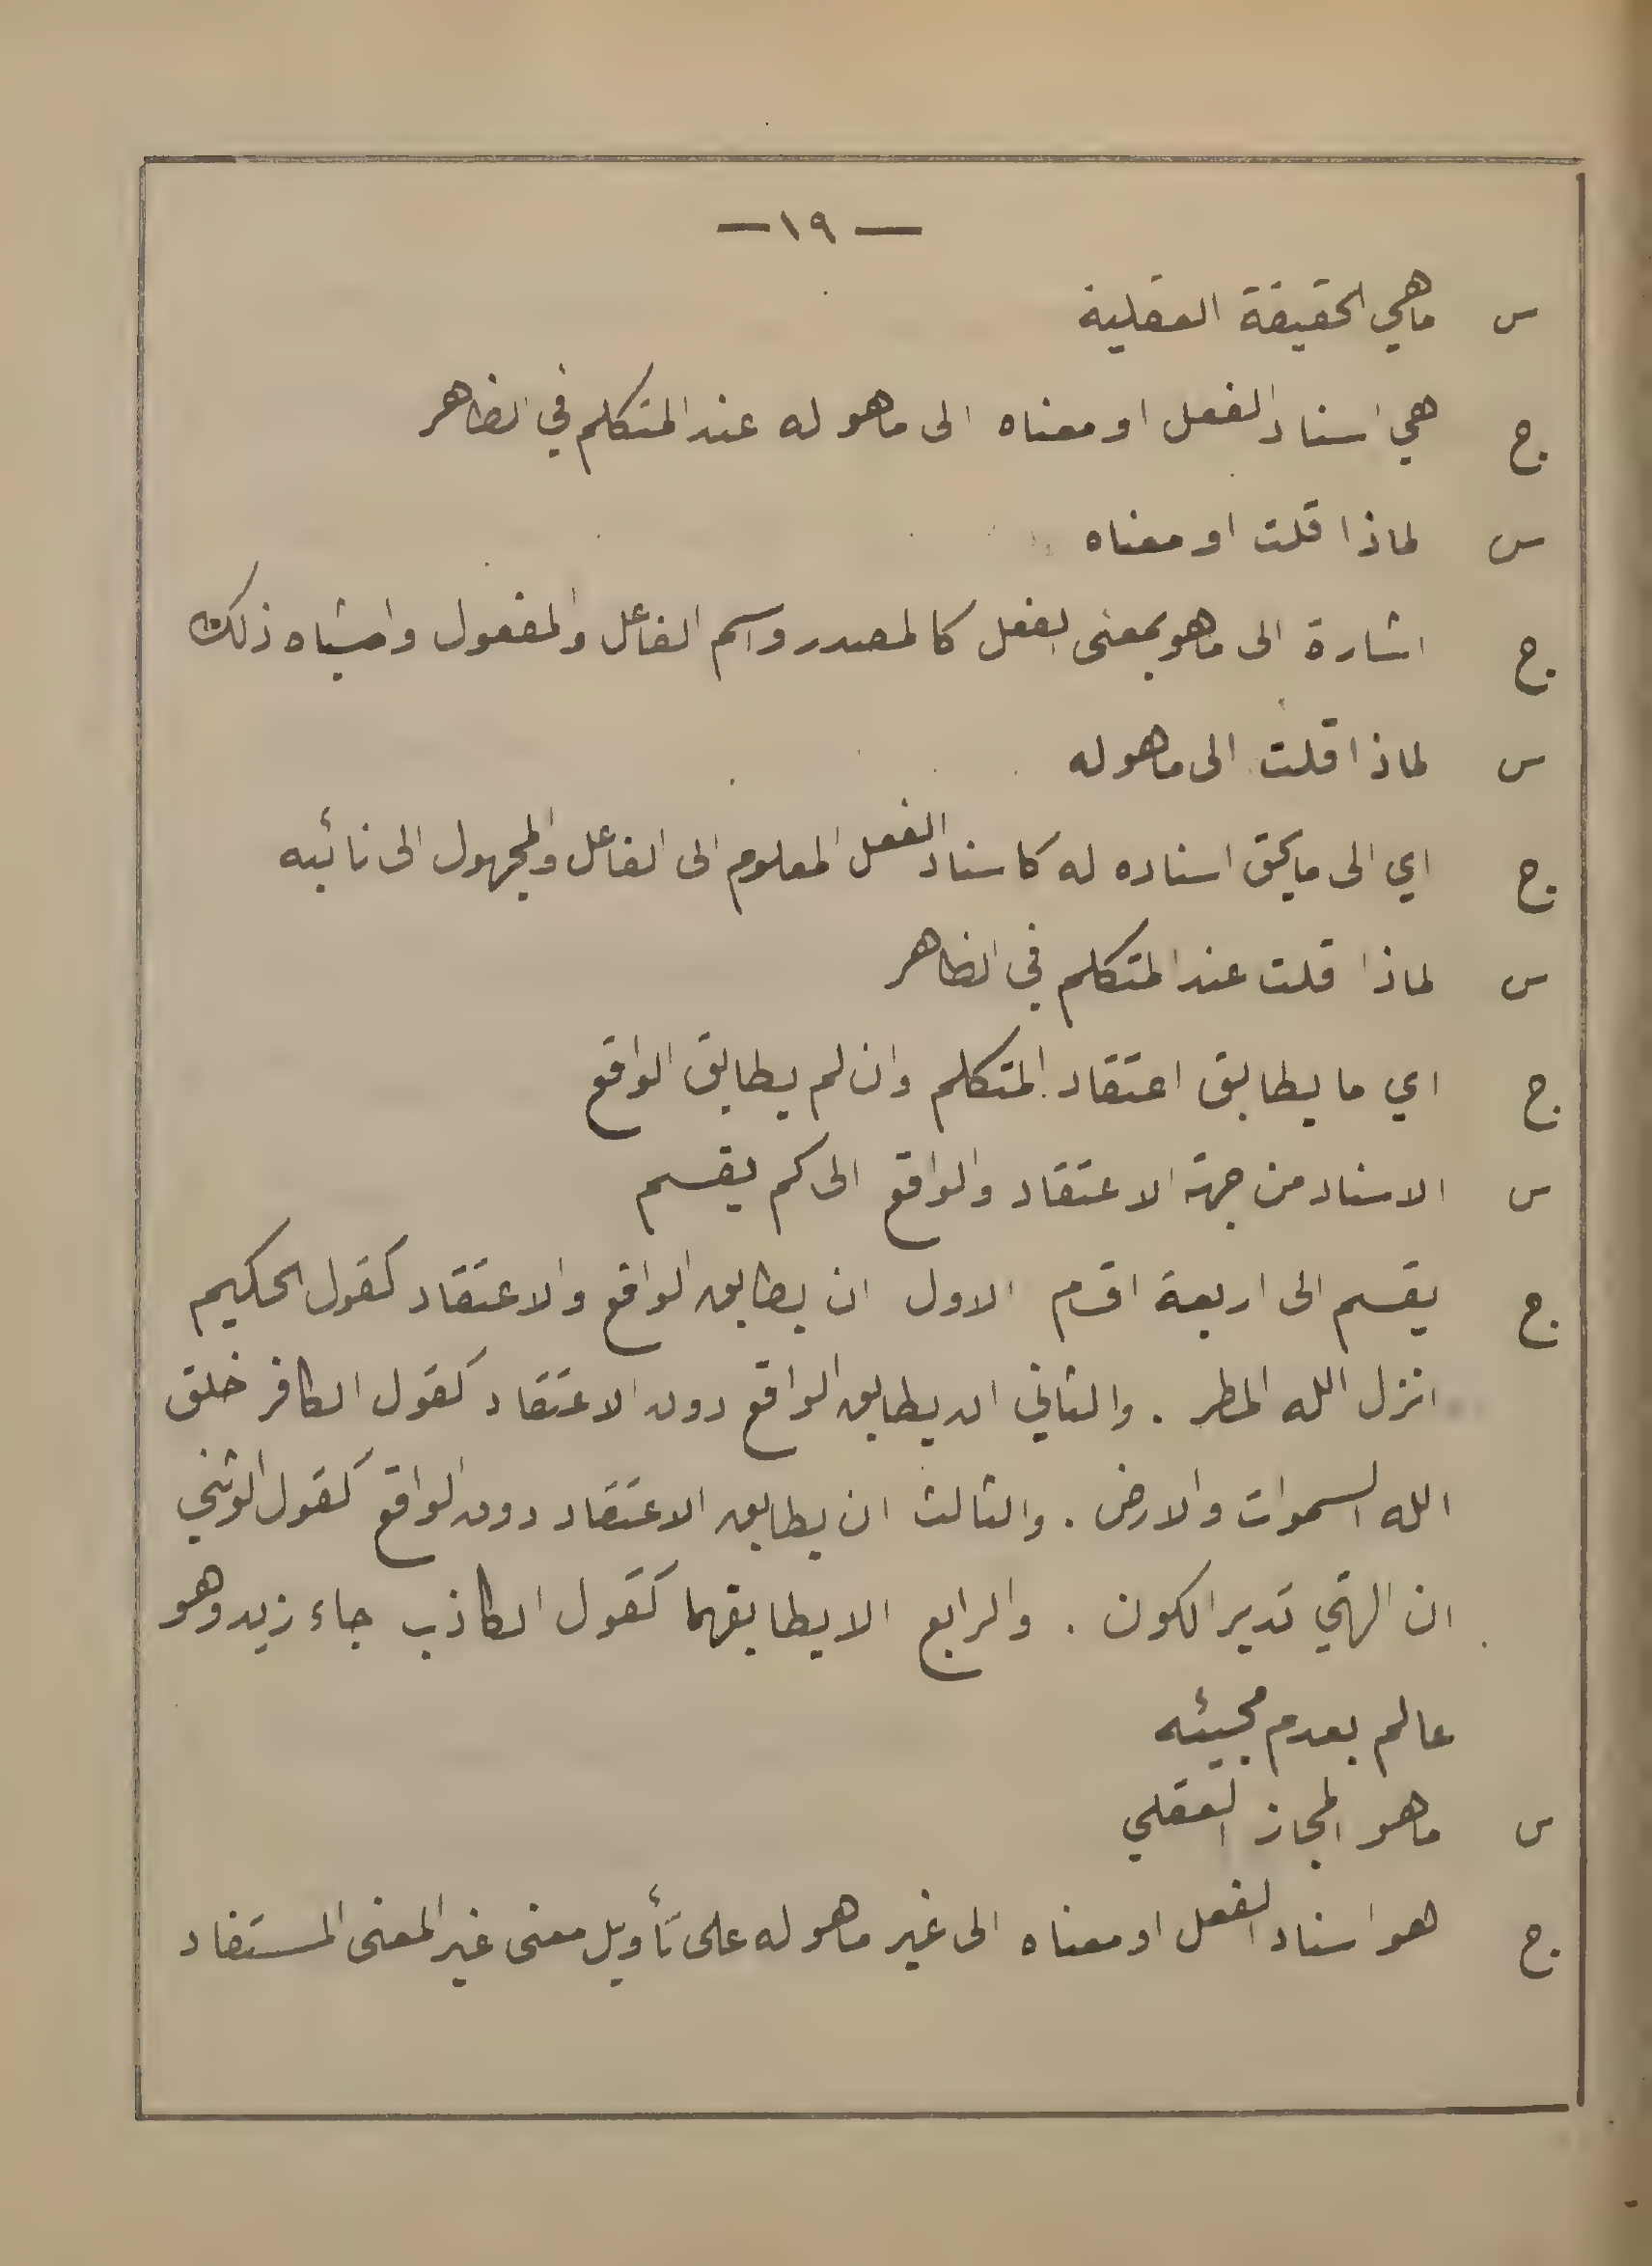 — ١٩ —
س ماهي الحقيقة العقلية
ج هي اسناد الفعل او معناه الى ماهو له عند المتكلم في الظاهر
س لماذا قلت او معناه
ج اشارة الى ماهو بمعنى الفعل كالمصدر واسم الفاعل والمفعول واشباه ذلك
س لماذا قلت الى ماهو له
ج اي الى مايحق اسناده له كاسناد الفعل المعلوم الى الفاعل والمجهول الى نائبه
س لماذا قلت عند المتكلم في الظاهر
ج اي ما يطابق اعتقاد المتكلم وان لم يطابق الواقع
س الاسناد من جهة الاعتقاد والواقع الى كم يقسم
ج يقسم الى اربعة اقسام الاول ان يطابق الواقع والاعتقاد كقول الحكيم
انزل الله المطر . والثاني ان يطابق الواقع دون الاعتقاد كقول الكافر خلق
الله السموات والارض . والثالث ان يطابق الاعتقاد دون الواقع كقول الوثني
ان الهتي تدير الكون . والرابع الا يطابقهما كقول الكاذب جاء زيد وهو
عالم بعدم مجيئه
س ماهو المجاز العقلي
ج هو اسناد الفعل او معناه الى غير ماهو له على تأويل معنى غير المعنى المستفاد